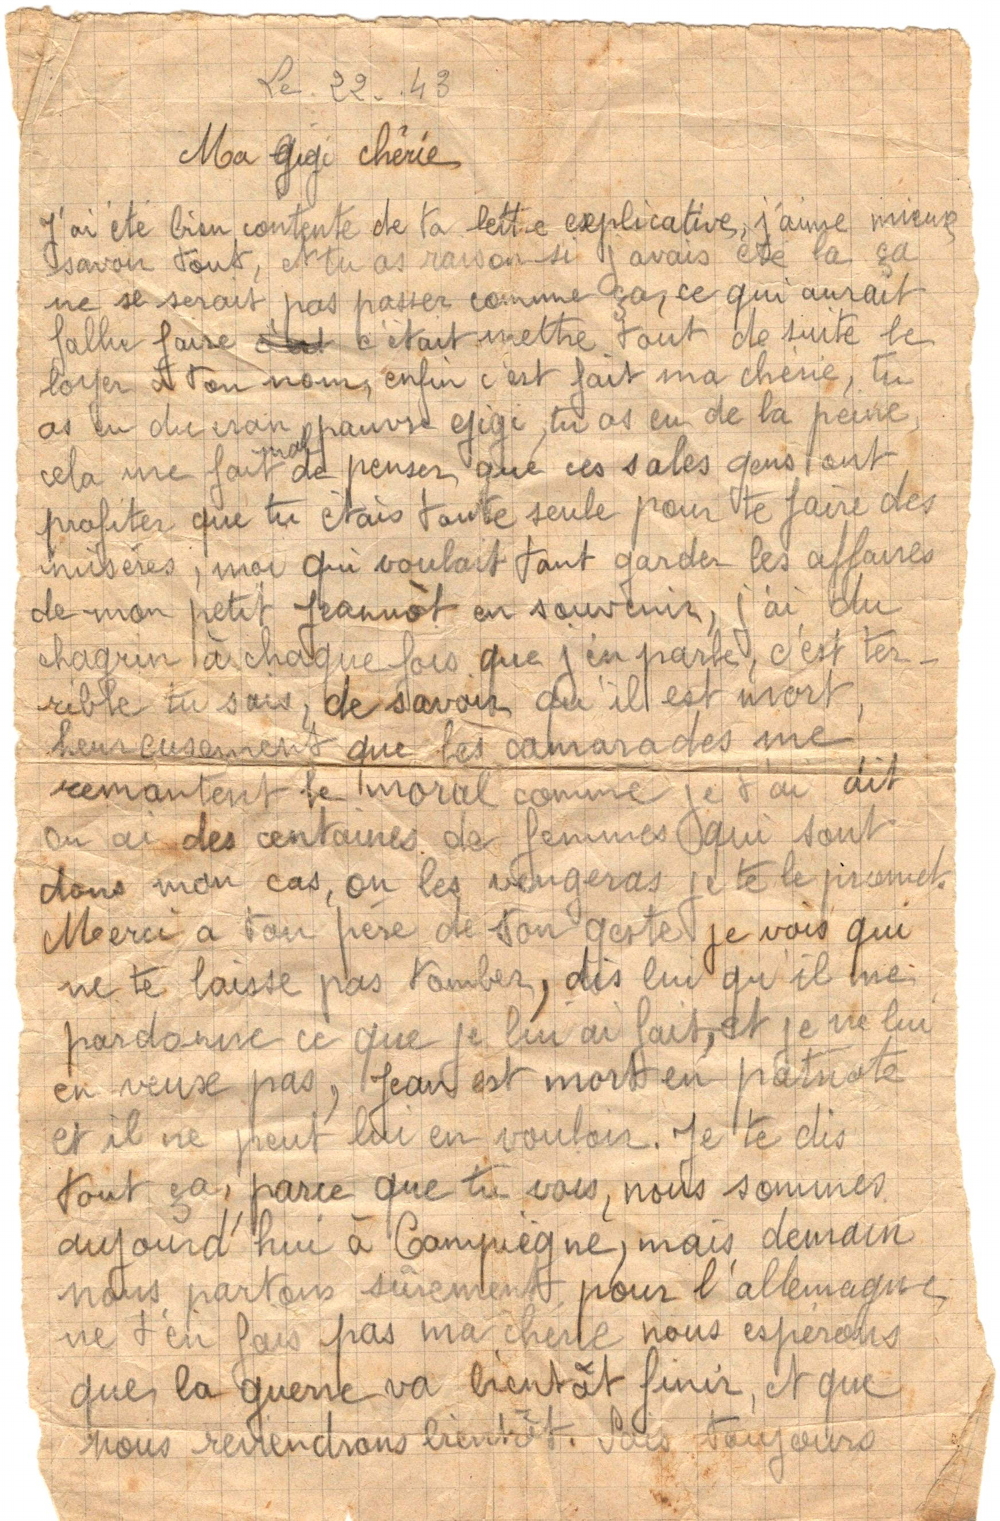 Le. 22. .43
Ma gigi chérie
J'ai été bien contente de ta lettre explicative, j'aime mieux
savoir tout, et tu as raison si j'avais été la ça
ne se serait pas passer comme ça, ce qui aurait
fallu faire c'était mettre tout de suite le
loyer à ton nom, enfin c'est fait ma chérie, tu
as eu du cran pauvre gigi, tu as eu de la peine,
cela me fait mal de penser que ces sales gens ont
profiter que tu étais toute seule pour te faire des
misères, moi qui voulait tant garder les affaires
de mon petit Jeannôt en souvenir, j'ai du
chagrin à chaque fois que j'en parle, c'est ter-
rible tu sais, de savoir qu'il est mort,
heureusement que les camarades me
remontent le moral comme je t'ai dit
on ai des centaines de femmes qui sont
dans mon cas, on les vengeras je te le promet.
Merci a ton père de son geste je vois qui
ne te laisse pas tomber, dis lui qu'il me
pardonne ce que je lui ai fait, et je ne lui
en veux pas, Jean est mort en patriote
et il ne peut lui en vouloir. Je te dis
tout ça, parce que tu vois, nous sommes
aujourd'hui à Compiègne, mais demain
nous partons sûrement pour l'allemagne,
ne t'en fais pas ma chérie nous espérons
que la guerre va bientôt finir, et que
nous reviendrons bientôt. Sois toujours